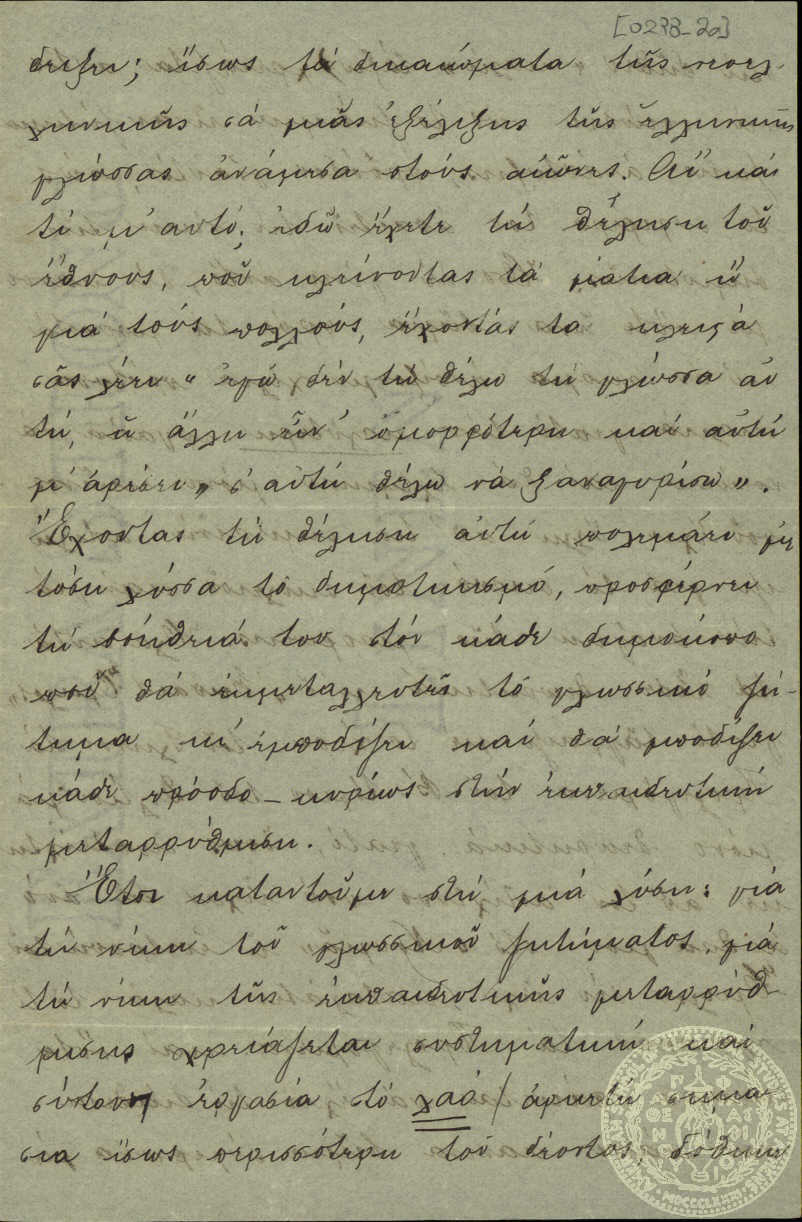 [0278_2α]
δείξει; ἴσως τὰ δικαιώματα τῆς νεοελ
ληνικῆς σά μιᾶς ἐξέλιξης τῆς ἑλληνικῆς
γλώσσας ἀνάμεσα στούς αἰῶνες. Ἄν κά
τί μ' αυτό; ἐδῶ ἔχετε τή θέληση τοῦ
ἔθνους, πού κλείνοντας τά μάτια ἤ
γιά τούς πολλούς, ἔχοντάς τα κλειστά
σᾶς λέει „ ἐγώ δέν τή θέλω τή γλώσσα αὐ
τή, ἡ ἄλλη εἶν' ὀμορφότερη καί αὐτή
μ' ἀρέσει, σ' αὐτή θέλω νά ξαναγυρίσω „.
Ἔχοντας τή θέληση αὐτή πολεμάει μέ
τόση λύσσα τό δημοτικισμό, προσφέρνει
τή βοήθειά του στόν κάθε δημοκόπο
πού θά ἐκμεταλλευτῆ τό γλωσσικό ζή-
τημα κι' ἐμποδίζει καί θά μποδίζει
κάθε πρόοδο – κυρίως στήν ἐκπαιδευτική
μεταρρύθμιση.
Ἔτσι καταντοῦμε στή μιά λύση: γιά
τή νίκη τοῦ γλωσσικοῦ ζητήματος, γιά
τή νίκη τῆς ἐκπαιδευτικῆς μεταρρύθ
μισης χρειάζεται συστηματική καί
σύντονη ἐργασία στό λαό / ἀρκετή σημα
σία ἴσως περισσότερη τοῦ δέοντος, δόθηκε